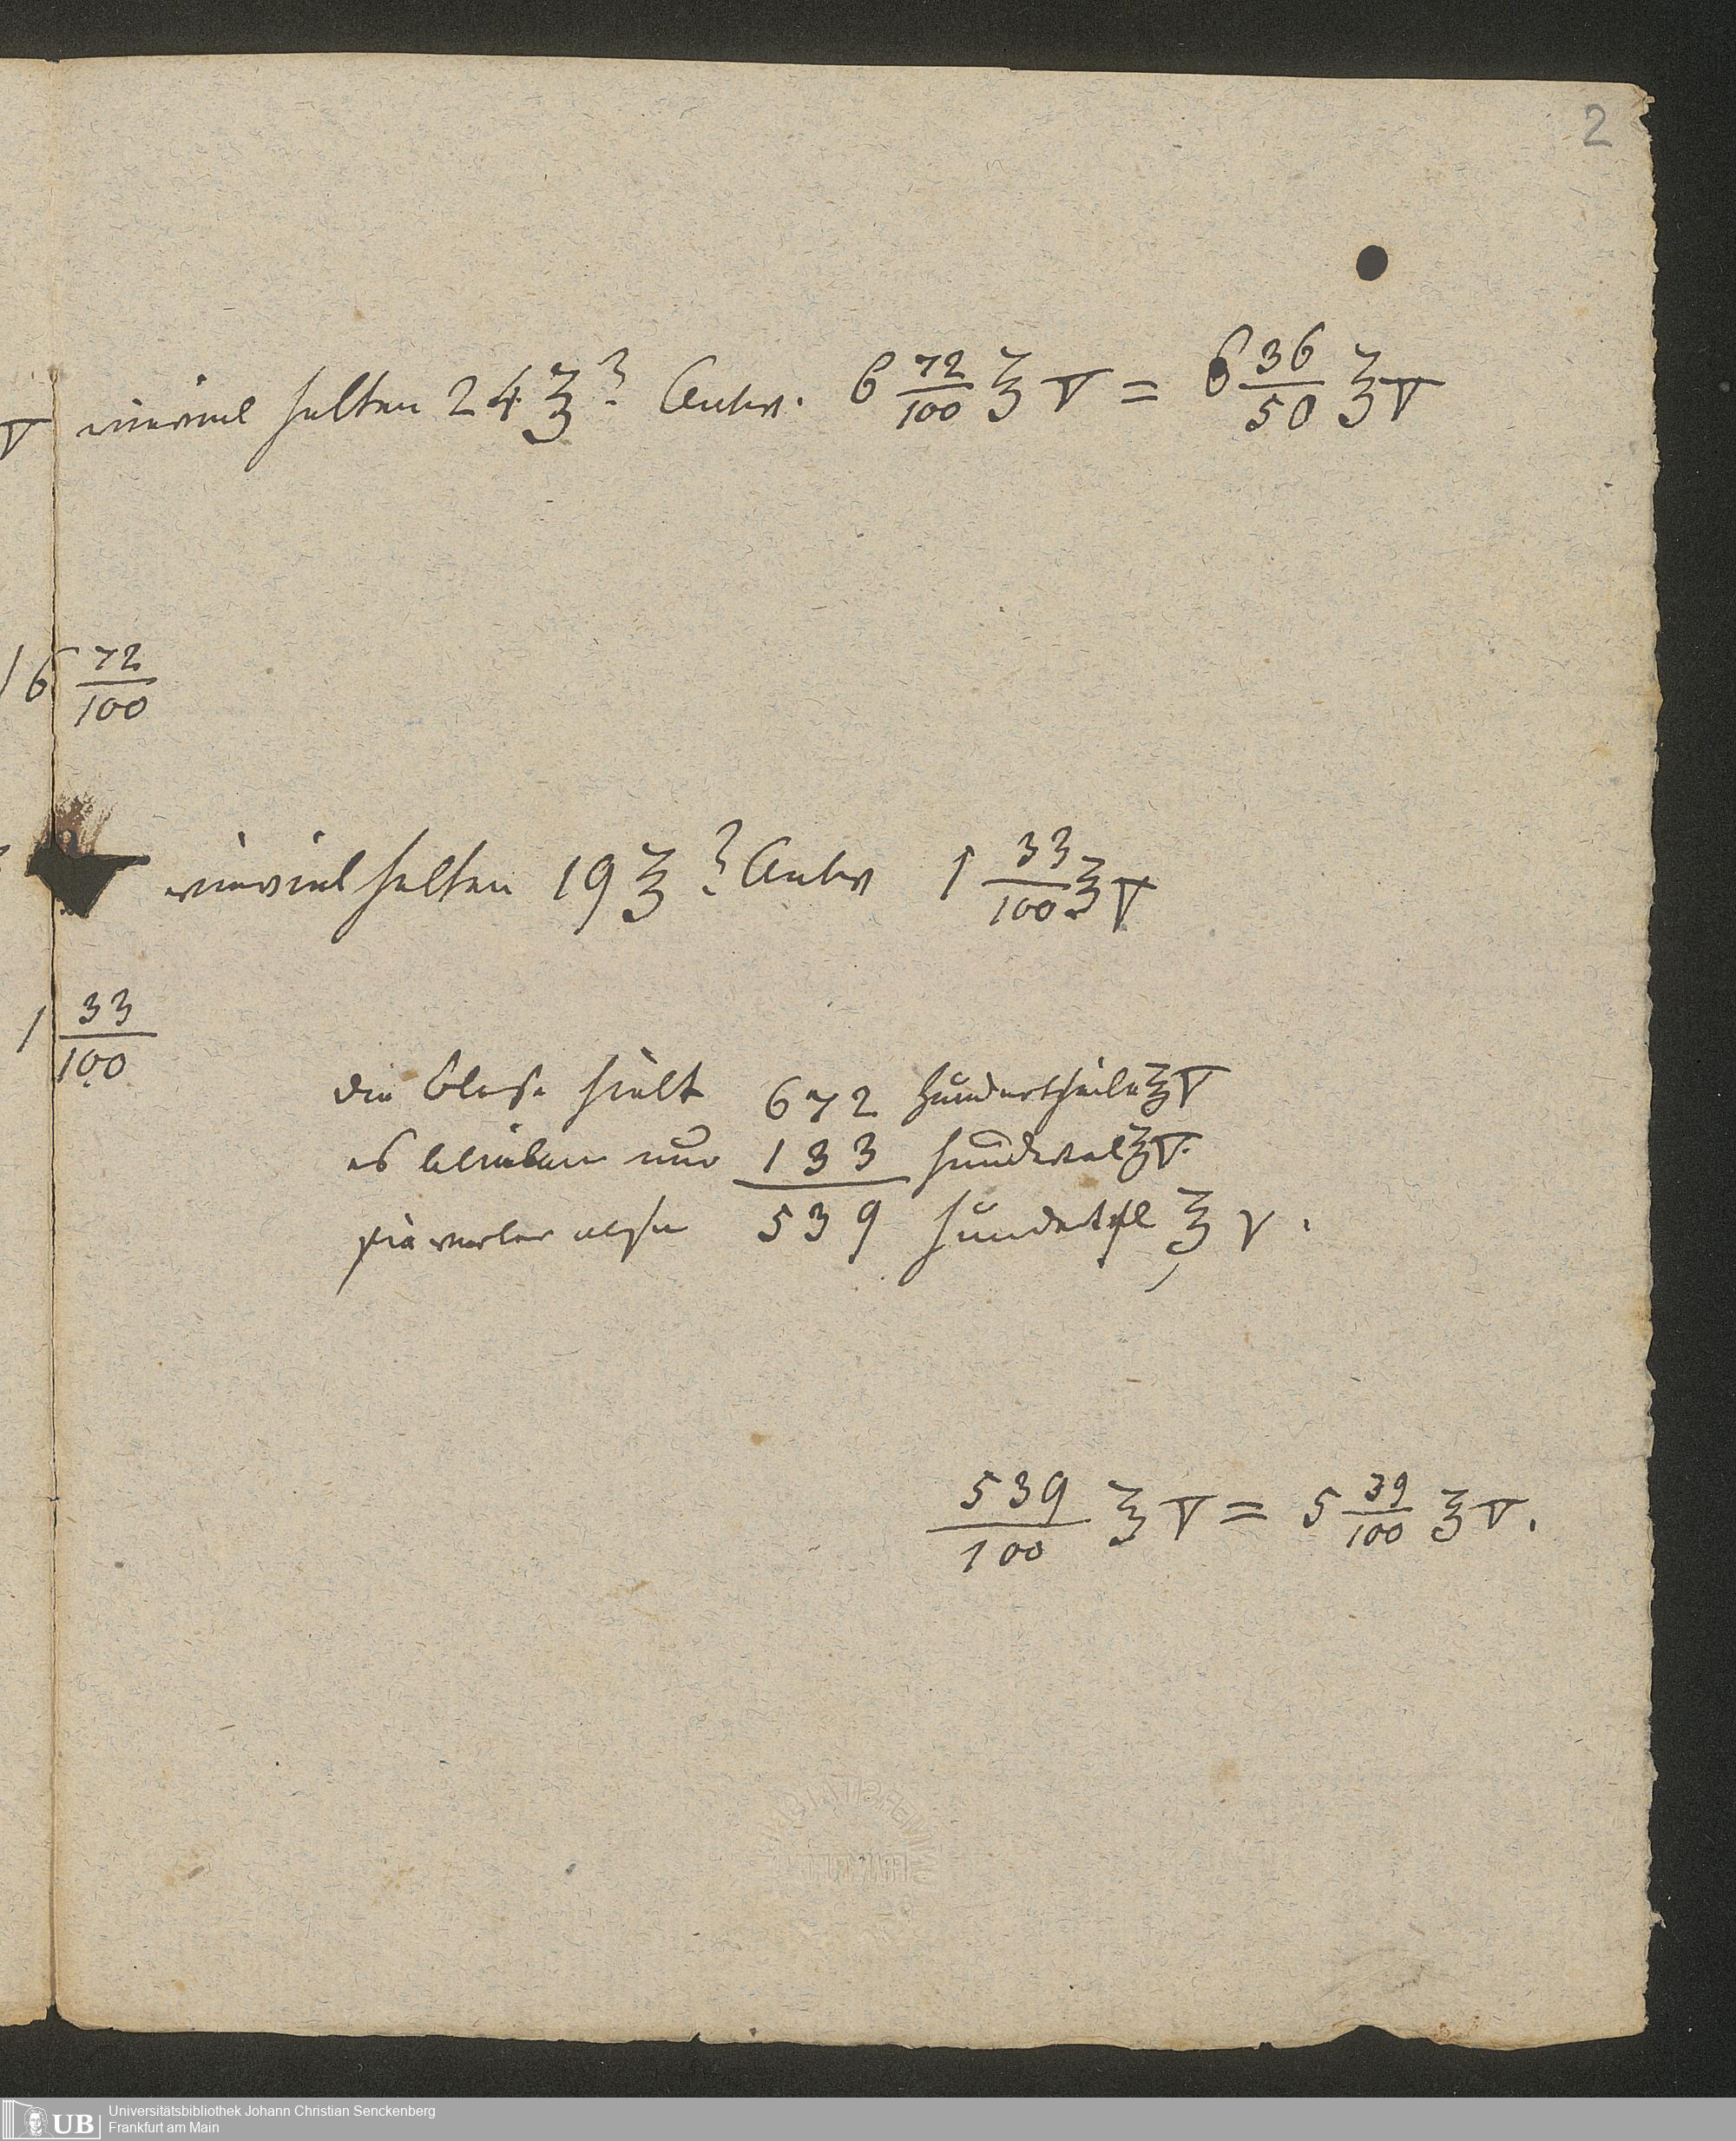 2
wieviel halten 24 ℥? Antw. 6 72/100 ℥ 🜄 = 6 36/50 ℥ 🜄
16 72/100
wieviel halten 19 ℥? Antw 1 33/100 ℥ 🜄
1 33/100
die Blase hielt 672 Hunderttheile ℥ 🜄
es blieben nur 133 hundertel ℥ 🜄.
sie verlor also 539 hundertthl ℥ 🜄.
539/100 ℥ 🜄 = 5 39/100 ℥ 🜄.
UB Universitätsbibliothek Johann Christian Senckenberg
Frankfurt am Main